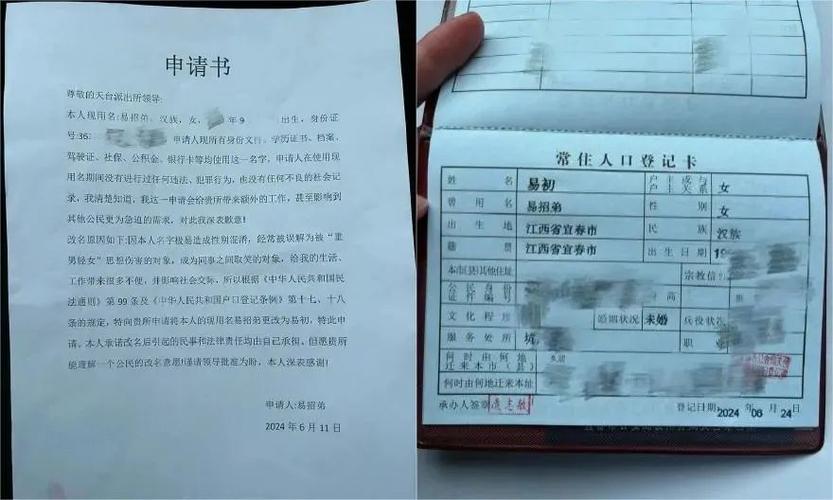 申请书
尊敬的天台派出所领导:
本人现用名:易招弟,汉族,女, 年9 出生,身份证
号36: 申请人现所有身份文件、学历证书、档案、
驾驶证、社保、公积金、银行卡等均使用这一名字,申请人在使用现
用名期间没有进行过任何违法、犯罪行为,也没有任何不良的社会记
录,我清楚知道,我这一申请会给贵所带来额外的工作,甚至影响到
其他公民更为急迫的需求,对此我深表歉意!
改名原因如下:因本人名字极易造成性别混淆,经常被误解为被“重
男轻女”思想伤害的对象,成为同事之间取笑的对象,给我的生活、
工作带来很多不便,并影响社会交际,所以根据《中华人民共和国民
法通则》第99条及《中华人民共和国户口登记条例》第十七、十八
条的规定,特向贵所申请将本人的现用名易招弟更改为易初,特此申
请。本人承诺改名后引起的民事和法律责任均由自己承担,但愿贵所
能理解一个公民的改名意愿!谨请领导批准为盼,本人深表感谢!
申请人:易招弟
2024年6月11日
常住人口登记卡
姓名 易初 户主或与户主关系 女
曾用名 易招弟 性别 女
出生地 江西省宜春市 民族 汉族
籍贯 江西省宜春市 出生日期 19
本市(县)其他住址 宗教信
公民身份证件编号 身高
文化程 婚姻状况 未婚 兵役状况
服务处所 职业
何时由何地迁来本市(县)
何时由何地迁来本址
承办人签章 登记日期 2024年06月24日